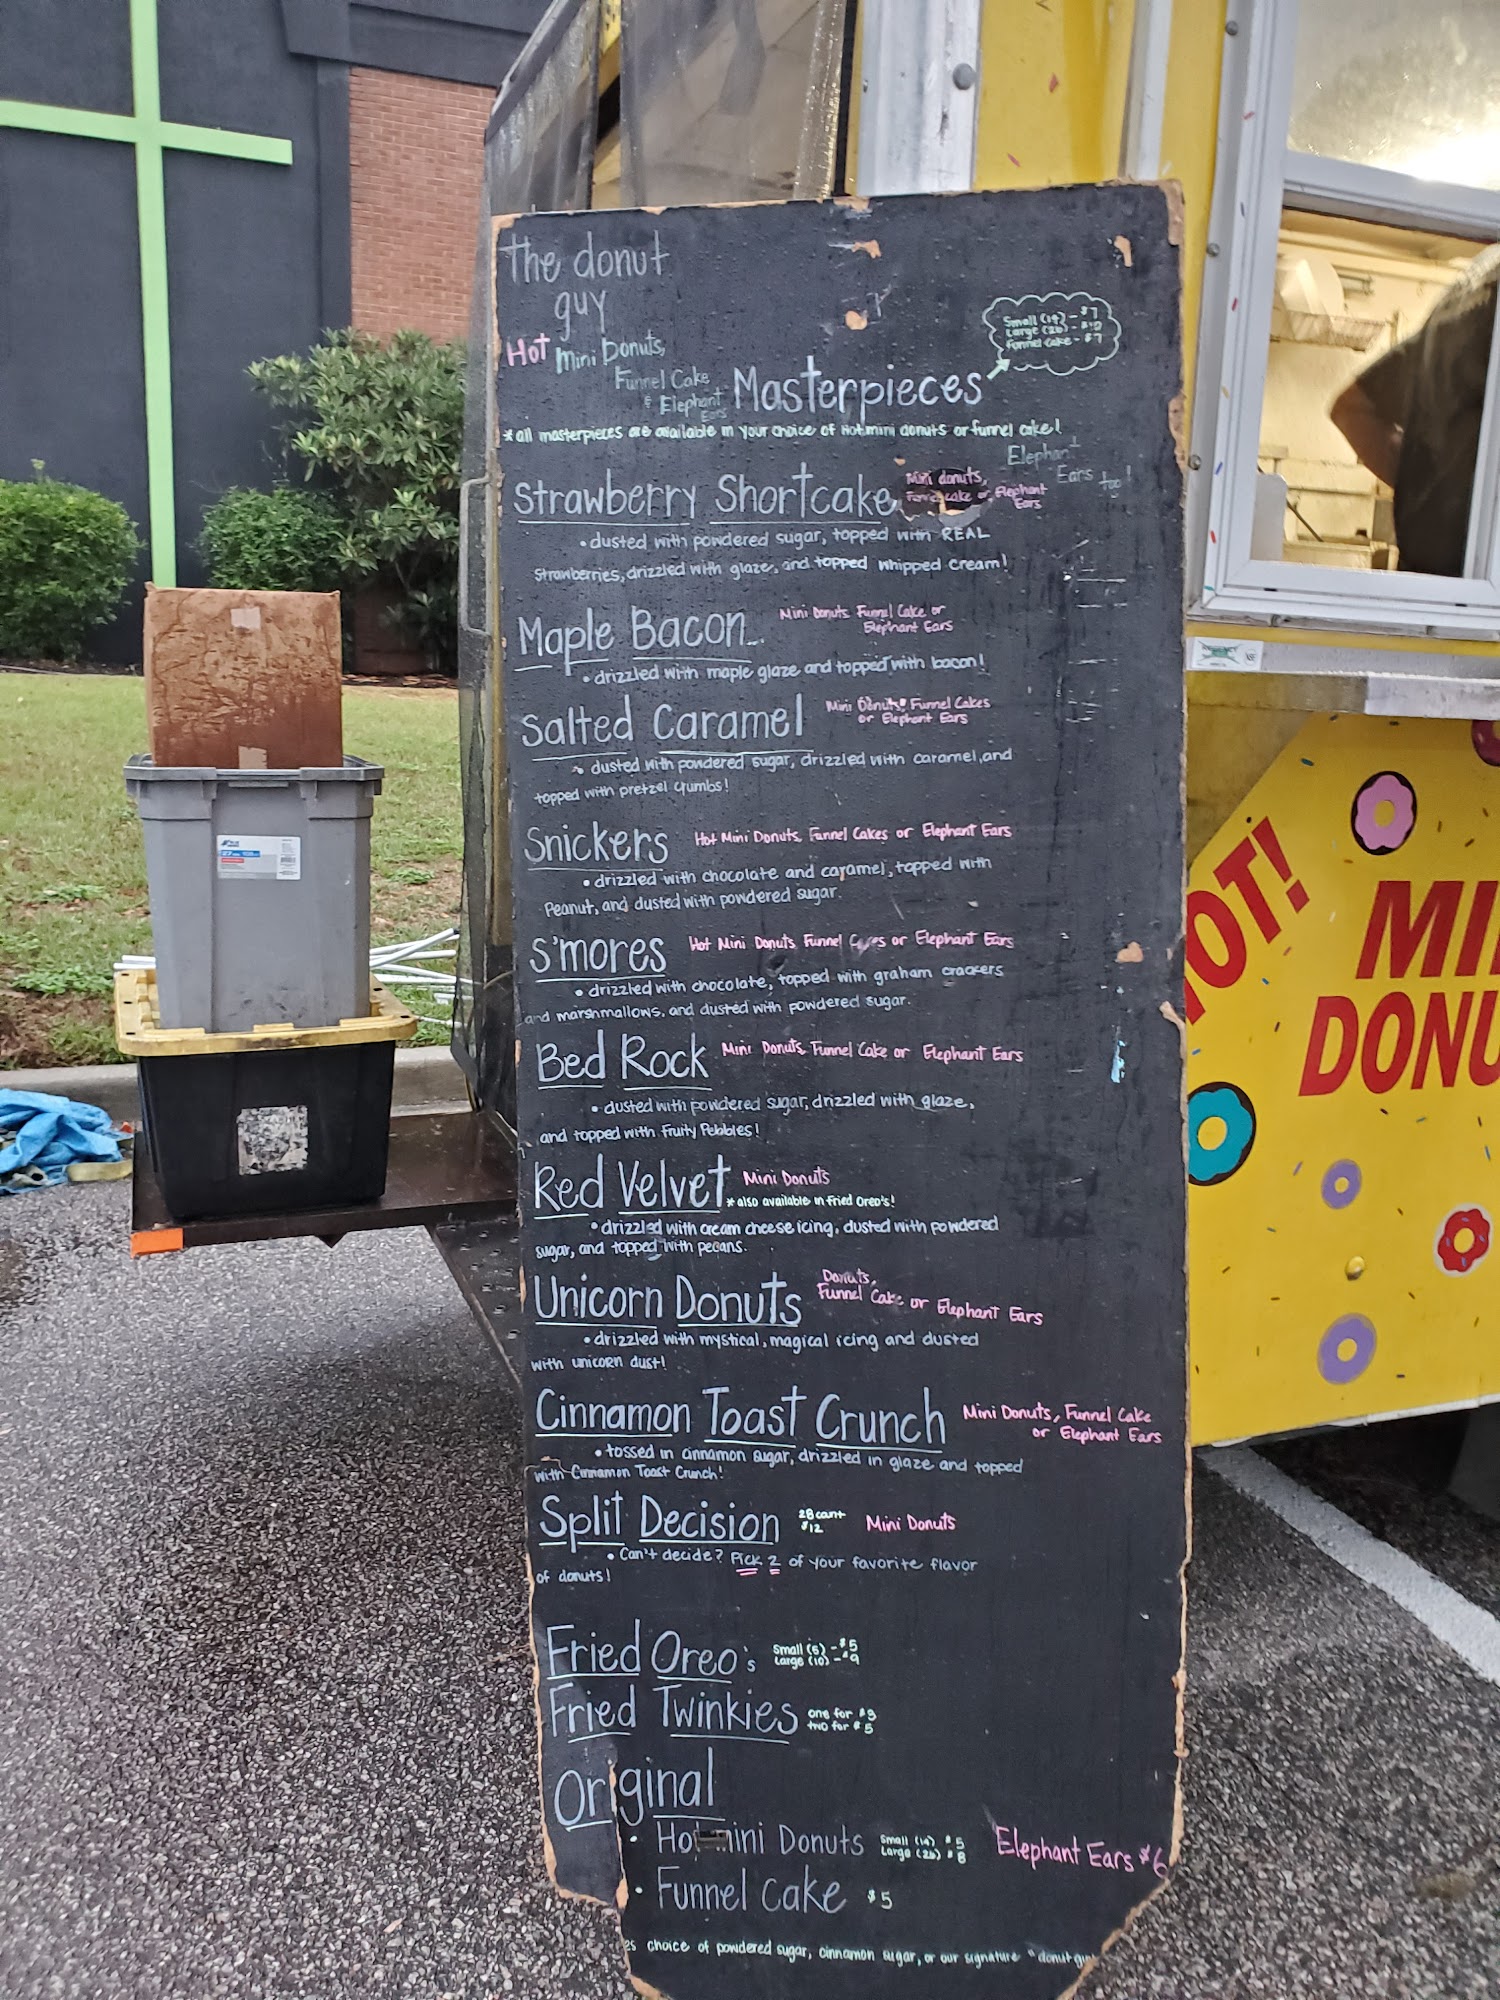 the donut
guy
Hot Mini Donuts,
Funnel Cake
& Elephant
Ears
Small (14) - $7
Large (26) - $10
Funnel cake - $7
Masterpieces
*all masterpieces are available in your choice of Hot mini donuts or funnel cake!
Elephant
Ears too!
Strawberry Shortcake
Mini donuts,
Funnel cake or Elephant
Ears
• dusted with powdered sugar, topped with REAL
strawberries, drizzled with glaze, and topped whipped cream!
Maple Bacon
Mini Donuts Funnel Cake or
Elephant Ears
• drizzled with maple glaze and topped with bacon!
Salted Caramel
Mini Donuts, Funnel Cakes
or Elephant Ears
• dusted with powdered sugar, drizzled with caramel, and
topped with pretzel crumbs!
Snickers Hot Mini Donuts, Funnel Cakes or Elephant Ears
• drizzled with chocolate and caramel, topped with
Peanut, and dusted with powdered sugar.
S'mores Hot Mini Donuts Funnel Cakes or Elephant Ears
• drizzled with chocolate, topped with graham crackers
and marshmallows, and dusted with powdered sugar.
Bed Rock Mini Donuts, Funnel Cake or Elephant Ears
• dusted with powdered sugar, drizzled with glaze,
and topped with Fruity Pebbles!
Red Velvet Mini Donuts
*also available in Fried Oreo's!
• drizzled with cream cheese icing, dusted with powdered
sugar, and topped with pecans.
Unicorn Donuts
Donuts,
Funnel Cake or Elephant Ears
• drizzled with mystical, magical icing and dusted
with unicorn dust!
Cinnamon Toast Crunch
Mini Donuts, Funnel Cake
or Elephant Ears
• tossed in cinnamon sugar, drizzled in glaze and topped
with Cinnamon Toast Crunch!
Split Decision
28 count
$12
Mini Donuts
• Can't decide? Pick 2 of your favorite flavor
of donuts!
Fried Oreo's
Small (5) - $5
Large (10) - $9
Fried Twinkies
one for $3
two for $5
Original
• Hot mini Donuts
Small (14) $5
Large (26) $8
Elephant Ears $6
• Funnel Cake $5
choice of powdered sugar, cinnamon sugar, or our signature "donut guy
HOT!
MI
DONU
27